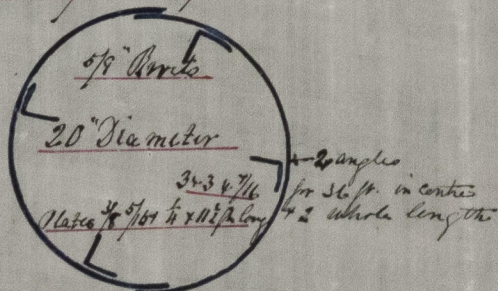 5/8" Rivets
20" Diameter
3 x 3 x 7/16
Plates 3/8 5/16 & 1/4 x 11 2 ft long
2 angles
for 36 ft. in centre
& 2 whole length